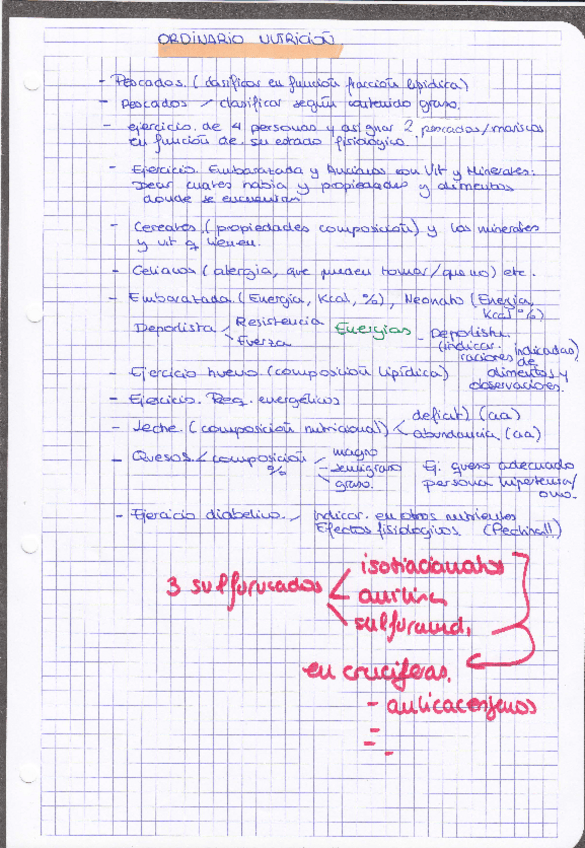 ORDINARIO NUTRICIÓN
- Pescados. (clasificar en función fracción lipídica)
- Pescados / clasificar según contenido graso.
- ejercicio de 4 personas y asignar 2 pescados/mariscos
en función de su estado fisiológico.
- Ejercicio. Embarazada y Anciano con Vit y Minerales:
Decir cuales había y propiedades y alimentos
donde se encuentran
- Cereales. (propiedades composición) y los minerales
y vit q tienen.
- Celiacos (alergia, que pueden tomar/que no) etc.
- Embarazada. (Energía, Kcal, %), Neonato (Energía,
Kcal %)
Deportista < Resistencia
Fuerza
Energías
- Deportista.
(indicar raciones indicadas)
de alimentos y
observaciones.
- Ejercicio huevo. (composición lipídica)
- Ejercicio. Req. energéticos
- Leche. (composición nutricional) < deficit) (aa)
abundancia (aa)
- Quesos < composición %
magro
- semigraso
graso.
Ej. queso adecuado
persona hipertensa/
- Ejercicio diabético. / indicar. en otros nutrientes
Efectos fisiológicos
3 sulfurados <
en cruciferas.